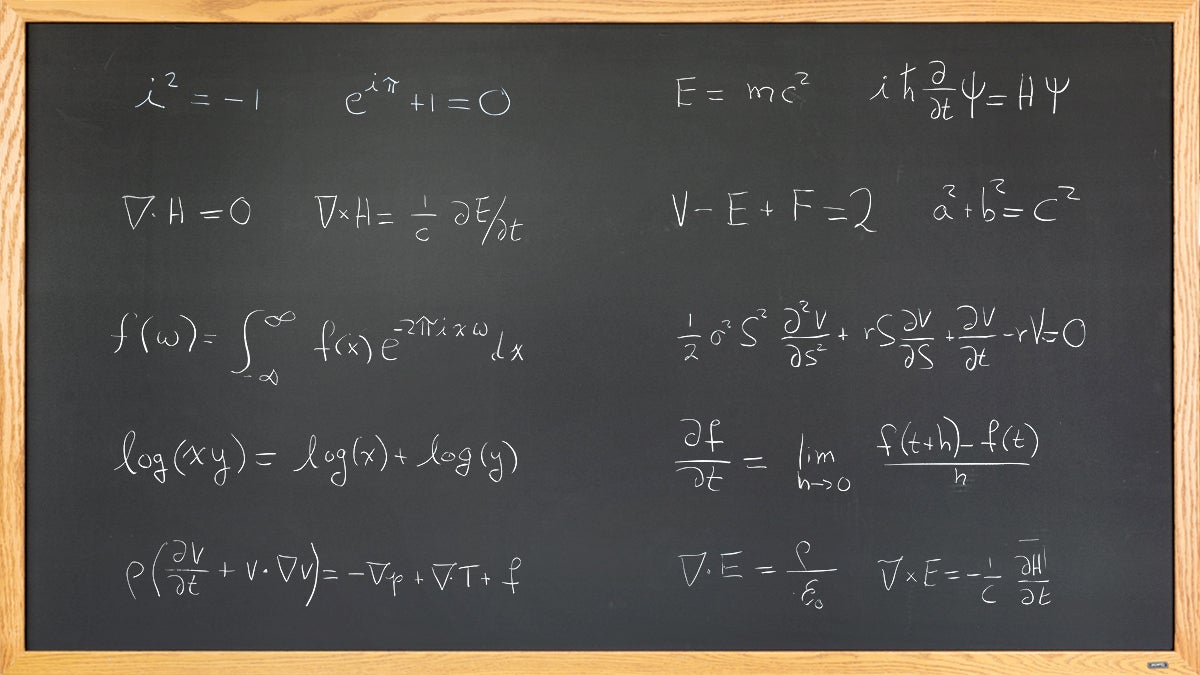 i² = −1   e^{iπ} + 1 = 0   E = mc²   iħ ∂/∂t ψ = H ψ
∇·H = 0   ∇×H = 1/c ∂E/∂t   V − E + F = 2   a² + b² = c²
f(ω) = ∫_{−∞}^{∞} f(x) e^{−2πixω} dx   1/2 σ² S² ∂²V/∂S² + rS ∂V/∂S + ∂V/∂t − rV = 0
log(xy) = log(x) + log(y)   ∂f/∂t = lim_{h→0} (f(t+h) − f(t))/h
ρ(∂v/∂t + v·∇v) = −∇p + ∇·T + f   ∇·E = ρ/ε₀   ∇×E = −1/c ∂H/∂t